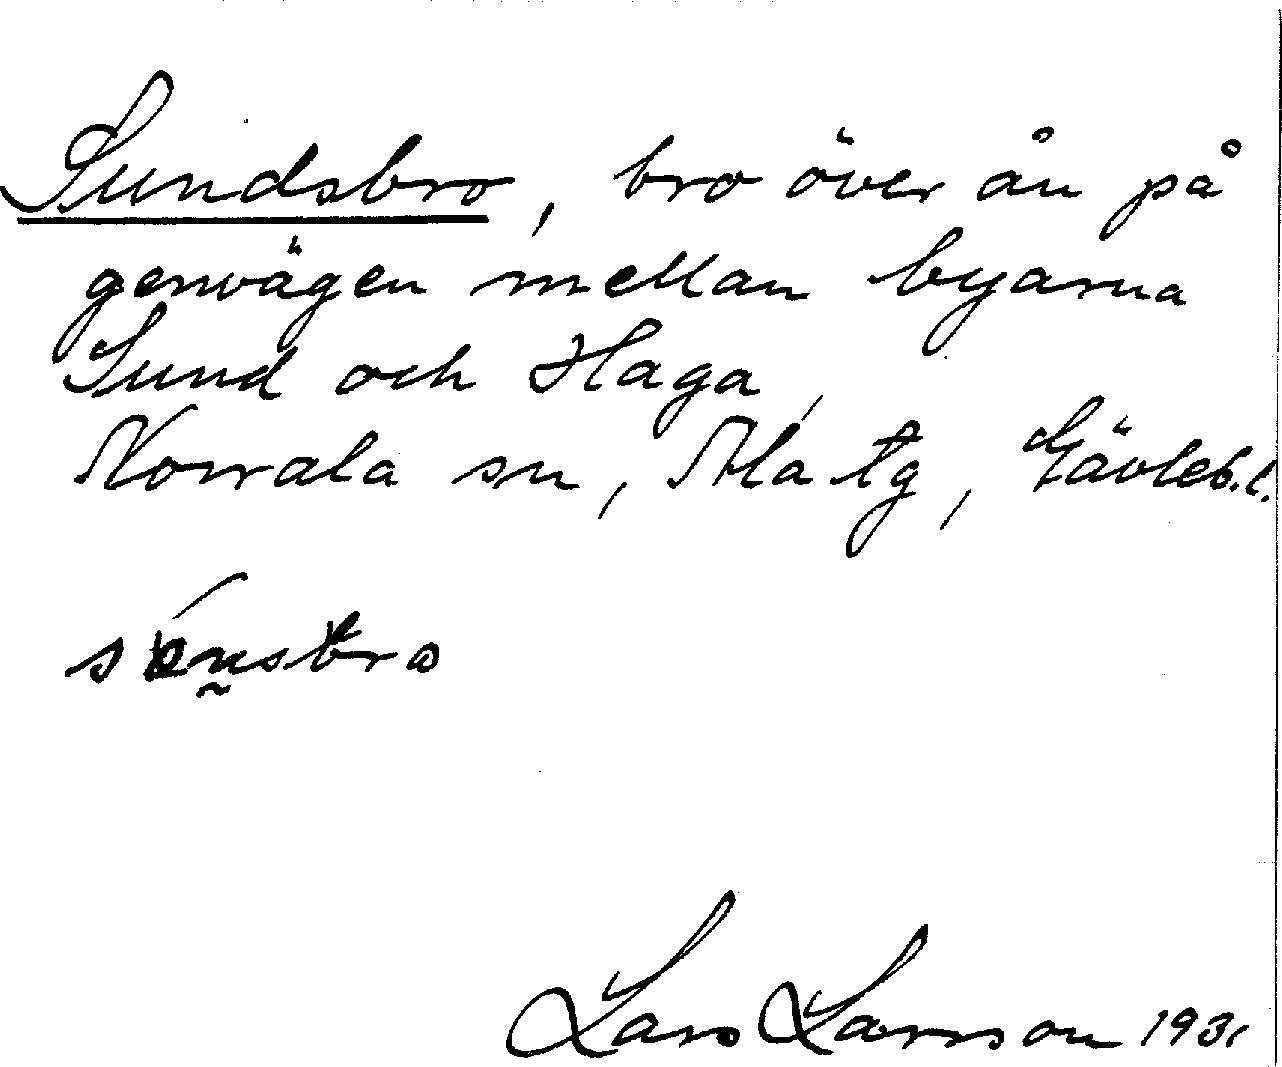 Sundsbro, bro över ån på
genvägen mellan byarna
Sund och Haga,
Norrala sn, Ala tg, Gävleb.l.
Lars Larsson 1931